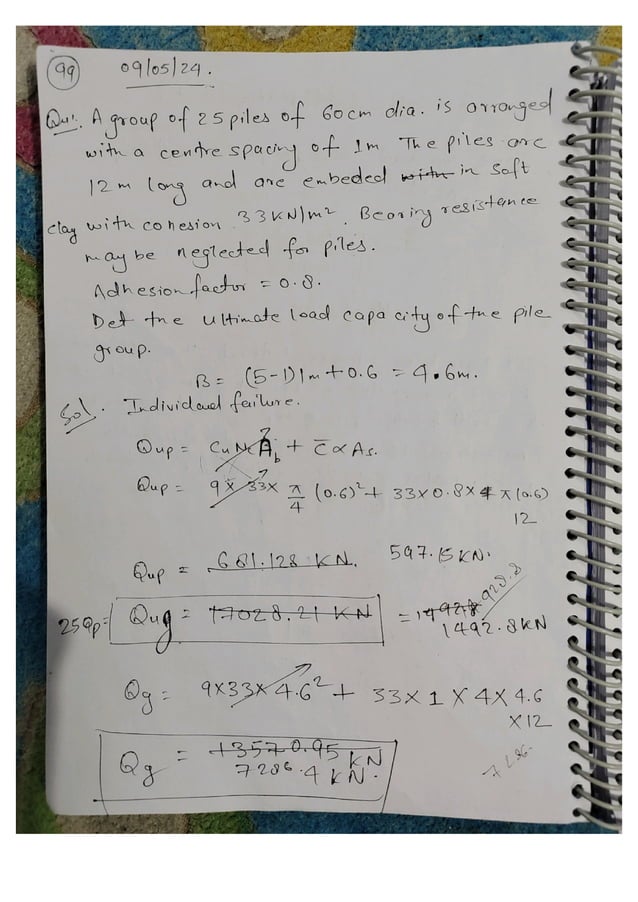 99 09/05/24.
Qu1. A group of 25 piles of 60cm dia. is arranged
with a centre spacing of 1m The piles are
12m long and are embeded with in soft
clay with cohesion 33KN/m². Bearing resistance
may be neglected for piles.
Adhesion factor = 0.8.
Det the ultimate load capacity of the pile
group.
B = (5-1)1m+0.6 = 4.6m.
Sol. Individual failure.
Qup = CuNcAb + C̄ ∝ As.
Qup = 9 x 33x π/4 (0.6)² + 33x0.8x π(0.6)
12
Qup = 681.128 KN. 597.15KN.
25Qp= Qug = 17028.21 KN = 14928.8
1492.8KN
Qg = 9x33x4.6² + 33x1x4x4.6
x12
Qg = 13570.95 KN
7286.4 KN.